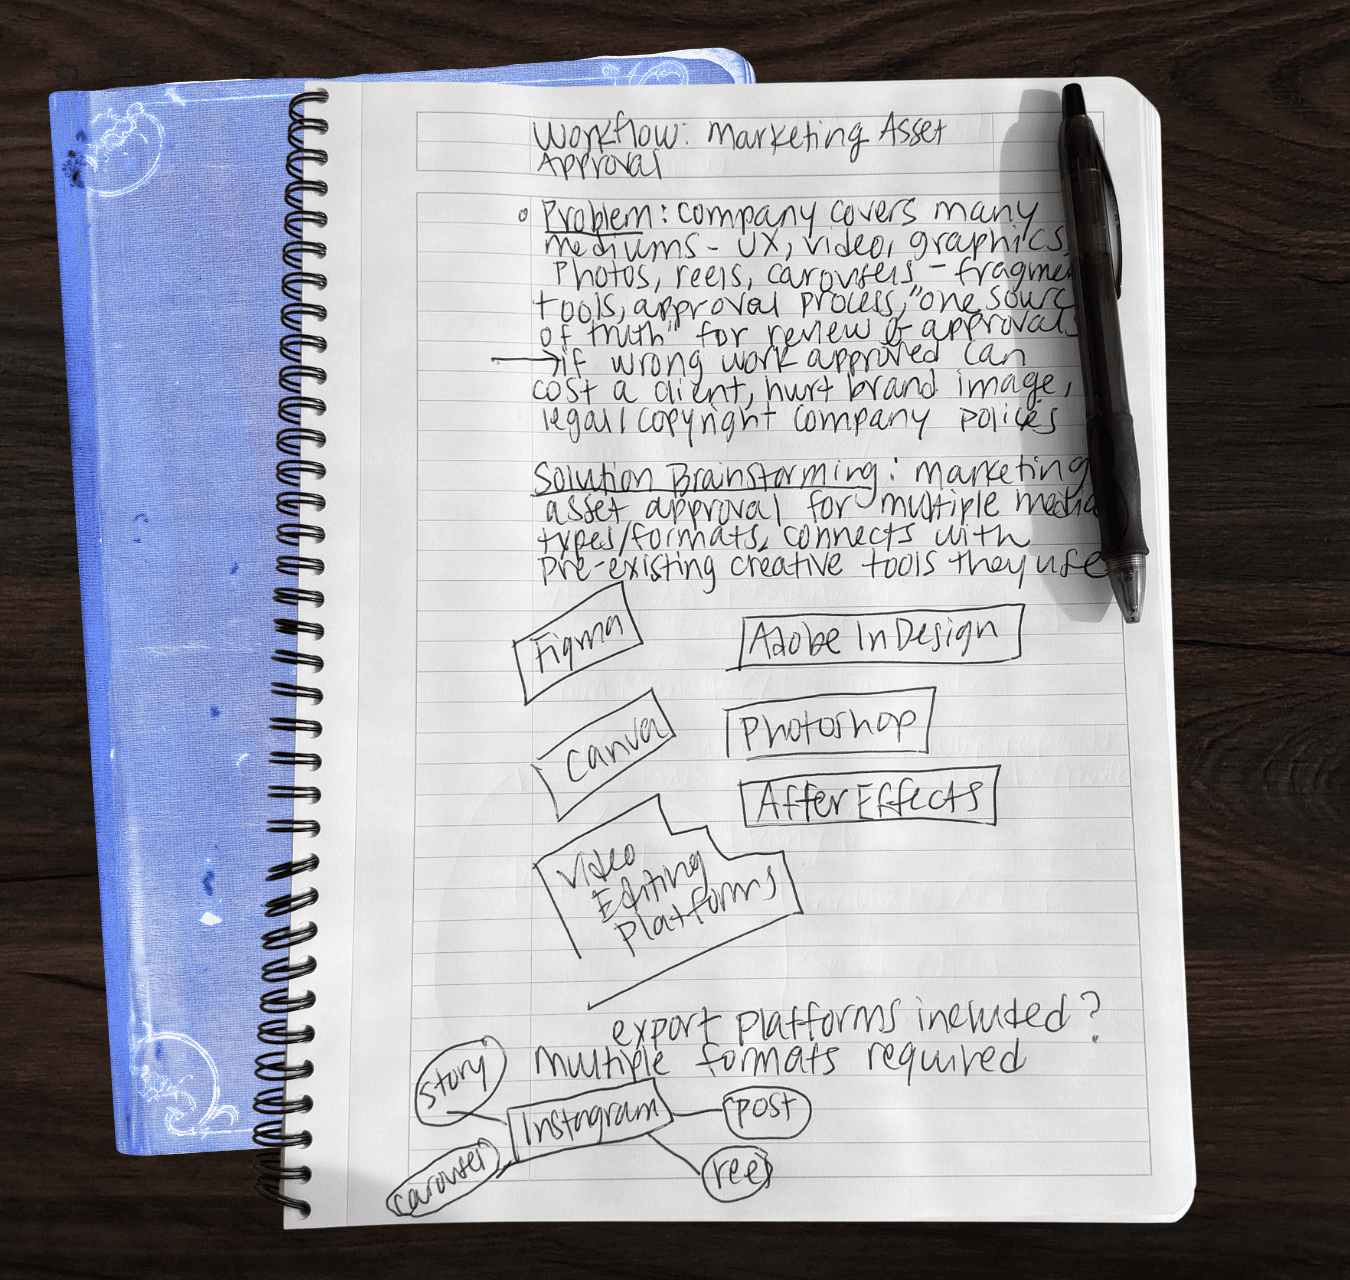 Workflow: Marketing Asset
Approval
Problem: company covers many
mediums - UX, video, graphics,
photos, reels, carousels - fragme
tools, approval process, "one sourc
of truth" for review & approvals
→ if wrong work approved can
cost a client, hurt brand image,
legal/copyright company polices
Solution Brainstorming: marketing
asset approval for multiple media
types/formats, connects with
pre-existing creative tools they use
Figma
Adobe InDesign
Canva
Photoshop
After Effects
Video
Editing
Platforms
export platforms included?
multiple formats required
story
Instagram
post
carousel
reel